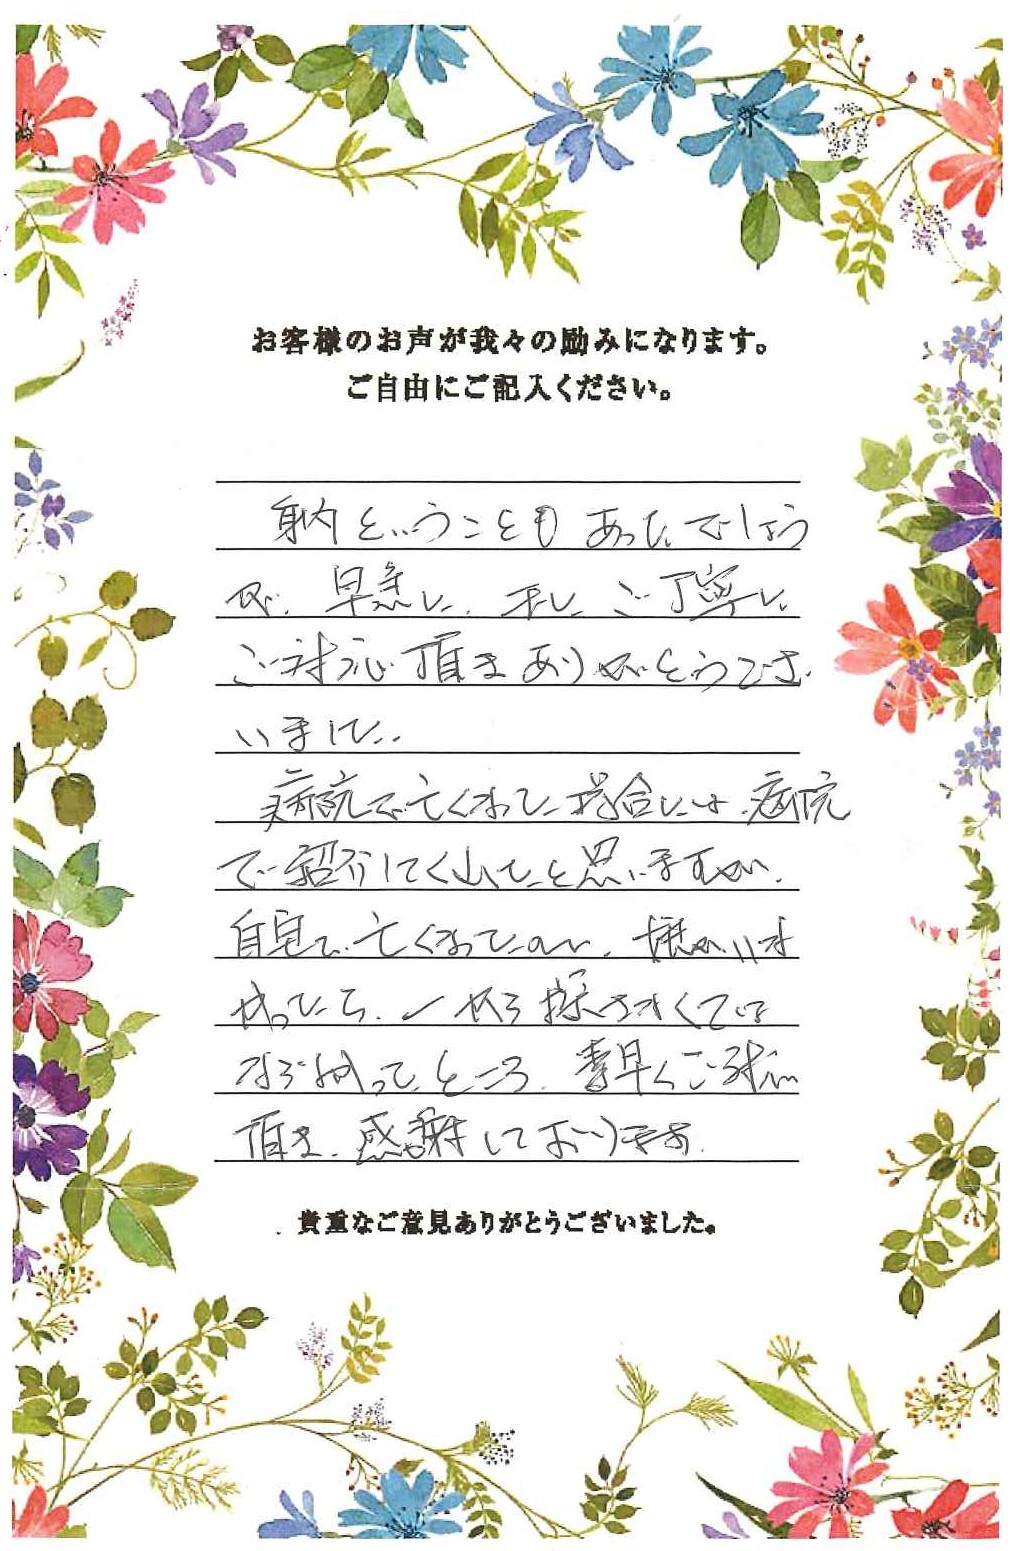 お客様のお声が我々の励みになります。
ご自由にご記入ください。
身内ということもあったでしょう
が、早急に、また、ご丁寧に
ご対応頂きありがとうござ
いました。
病院で亡くなった場合には、病院
でご紹介してくれたと思いますが、
自宅で亡くなったので、
かったら、一から探さなくては
ならなかったところ、素早くご対応
頂き、感謝しております。
貴重なご意見ありがとうございました。